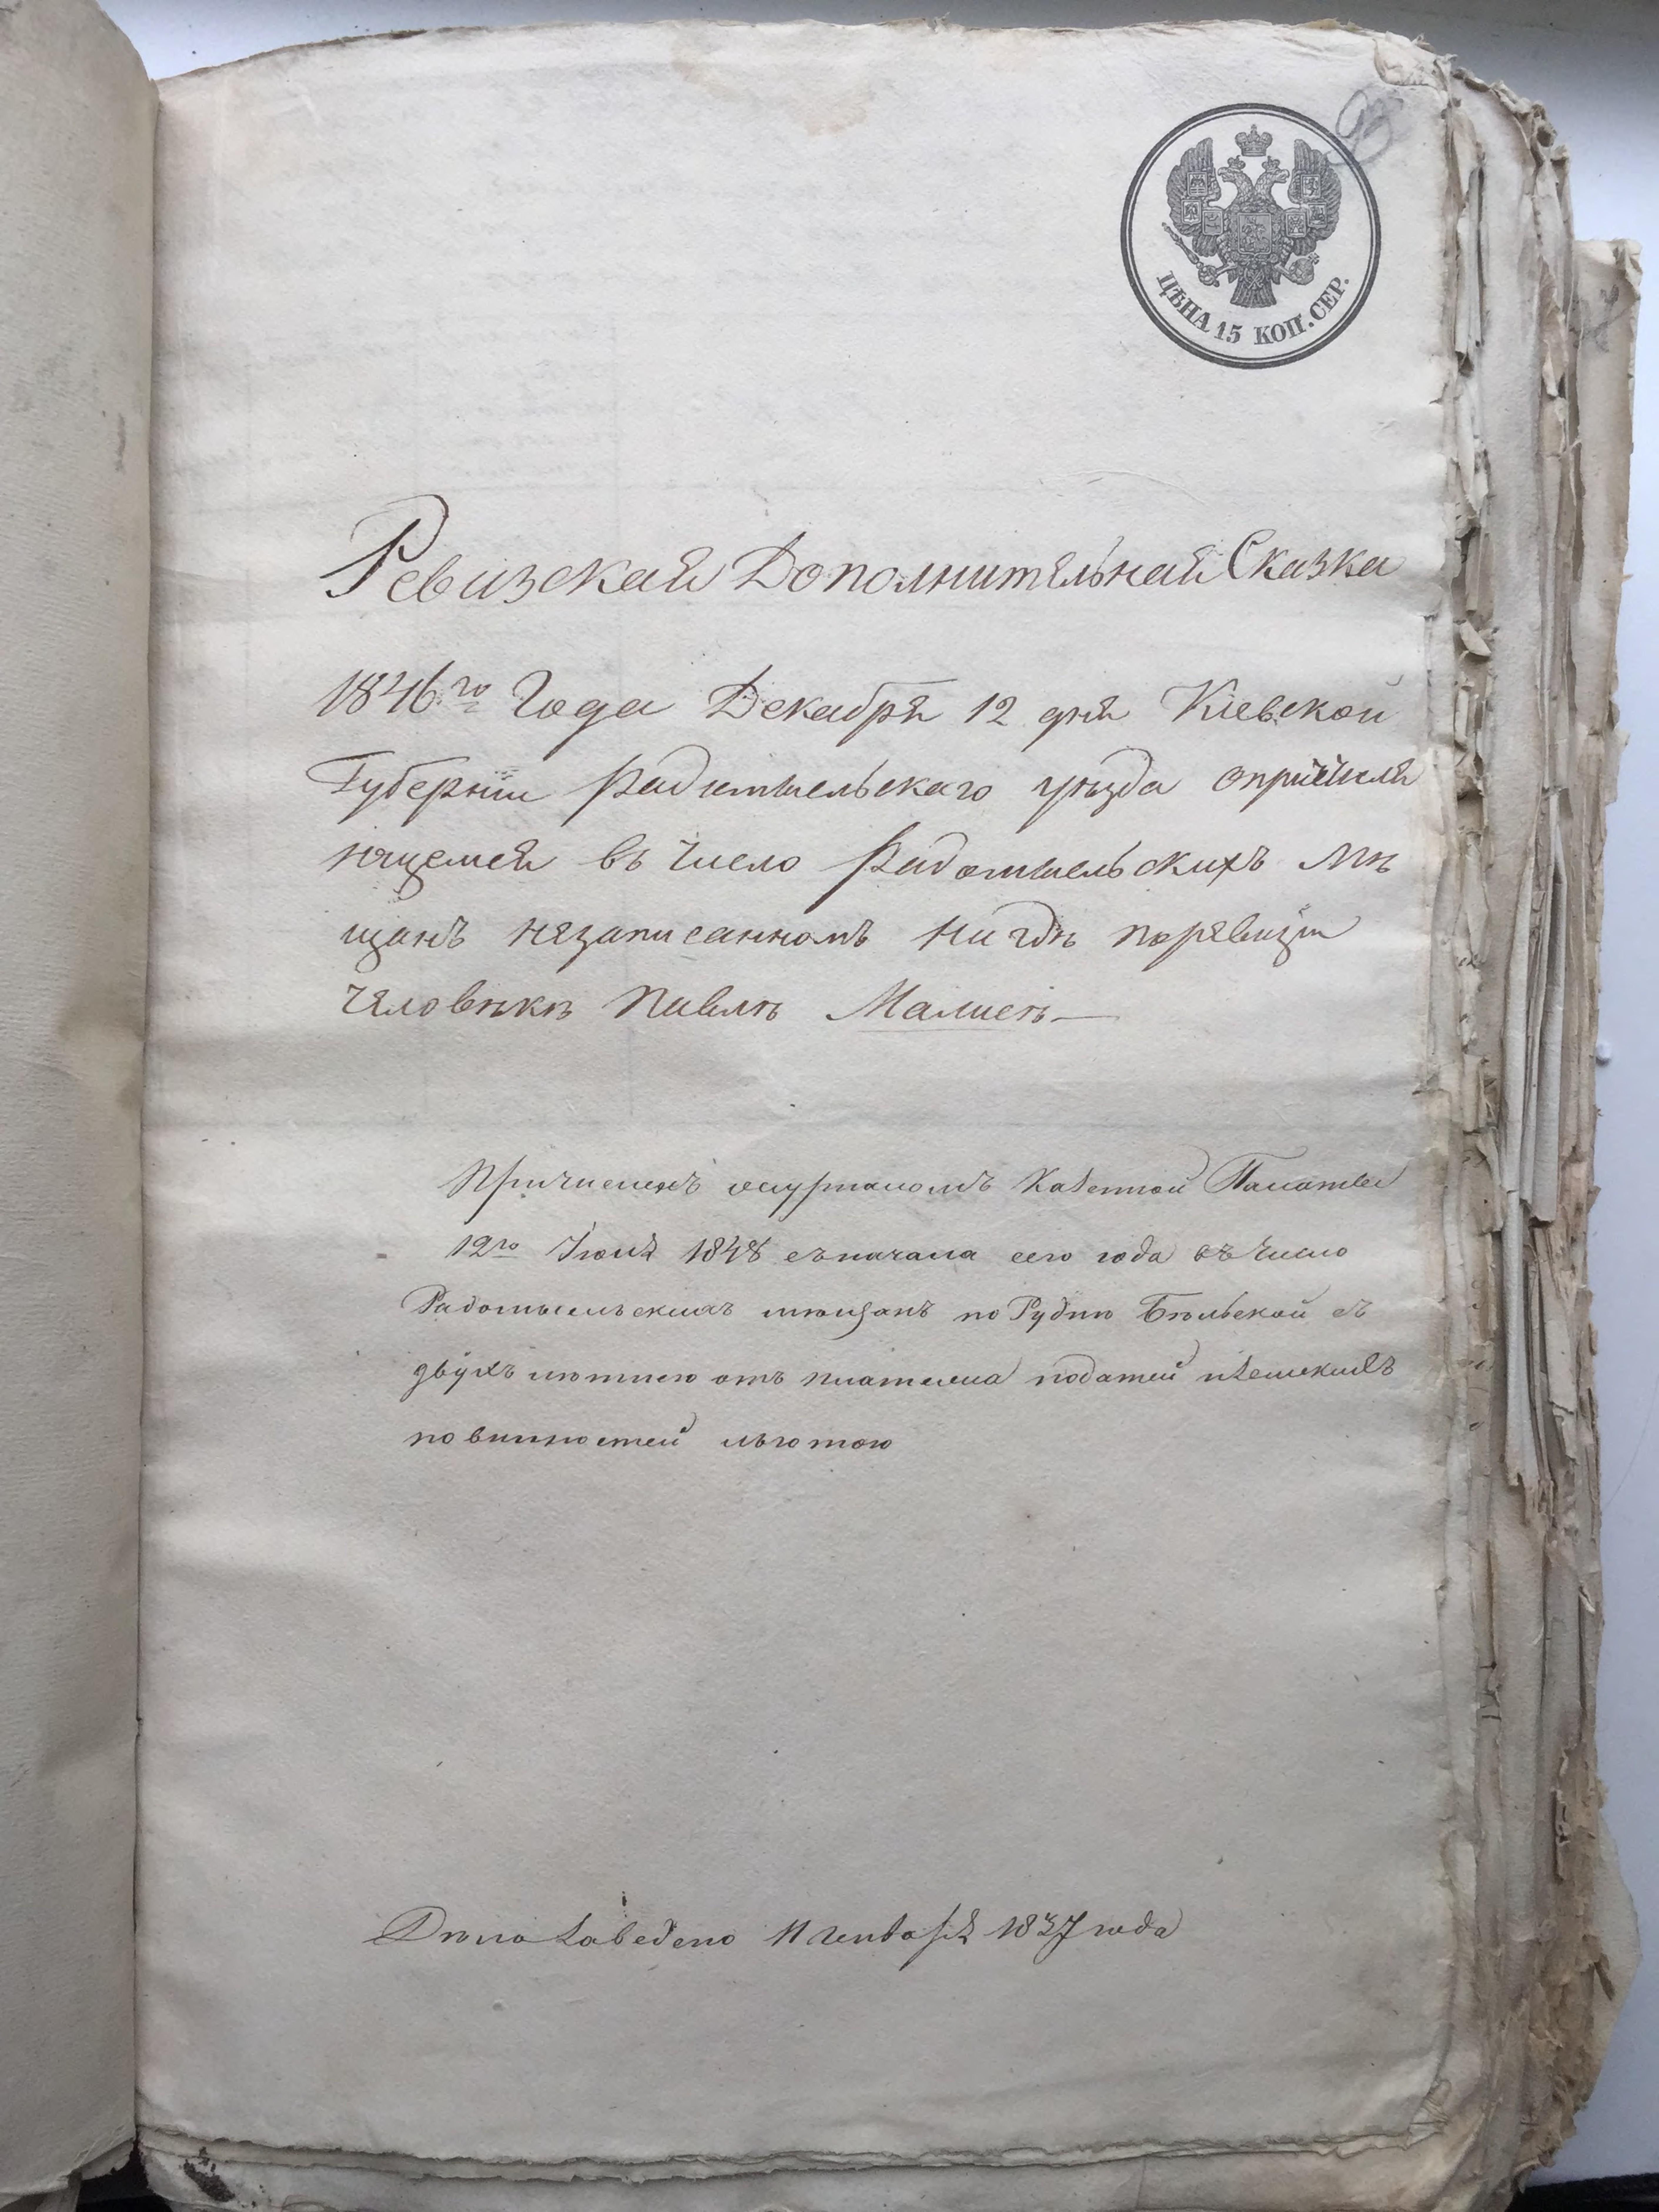 ЦѢНА 15 КОП. СЕР.
Ревизская Дополнительная Сказка
1846го Года Декабря 12 дня Кіевской
Губерніи Радомысльскаго уѣзда
въ число Радомысльскихъ мѣ
щанъ незаписанномъ нигдѣ поревизіи
человѣкѣ Павлѣ
Причисленъ журналомъ Казенной Палаты
12го Іюля 1848 съначала сего года въ число
Радомысльскихъ мѣщанъ по Рудню Бѣльской съ
двухъ лѣтнею отъ платежа податей
повинностей льготою
Дѣло заведено 11 Генваря года